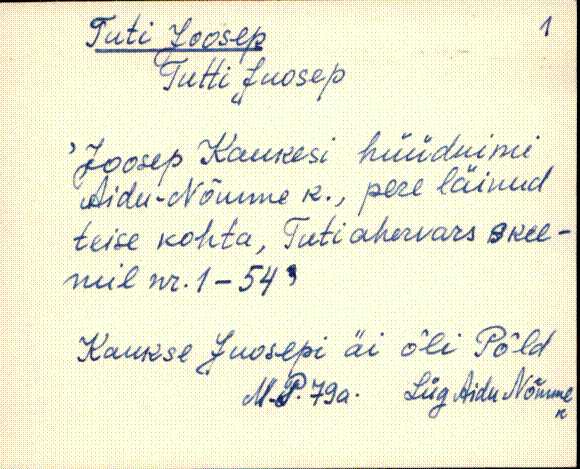 1
Tuti Joosep
Tutti Juosep
'Joosep Kaukesi hüüdnimi
Aidu-Nõmme k., pere läinud
teise kohta, Tutiahervars skee-
mil nr. 1-54'
Kaukse Juosepi äi õli Põld
M.P. 79a. Lüg Aidu Nõmme
k